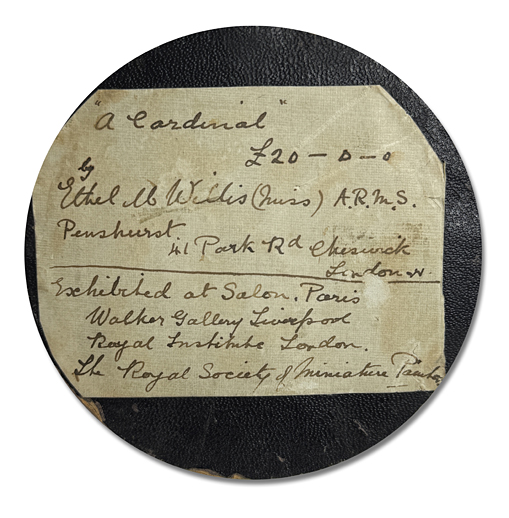 "A Cardinal"
£20-0-0
by
Ethel M Willis (Miss) A.R.M.S.
Penshurst
41 Park Rd Chiswick
London W
Exhibited at Salon, Paris
Walker Gallery Liverpool
Royal Institute London.
The Royal Society of Miniature